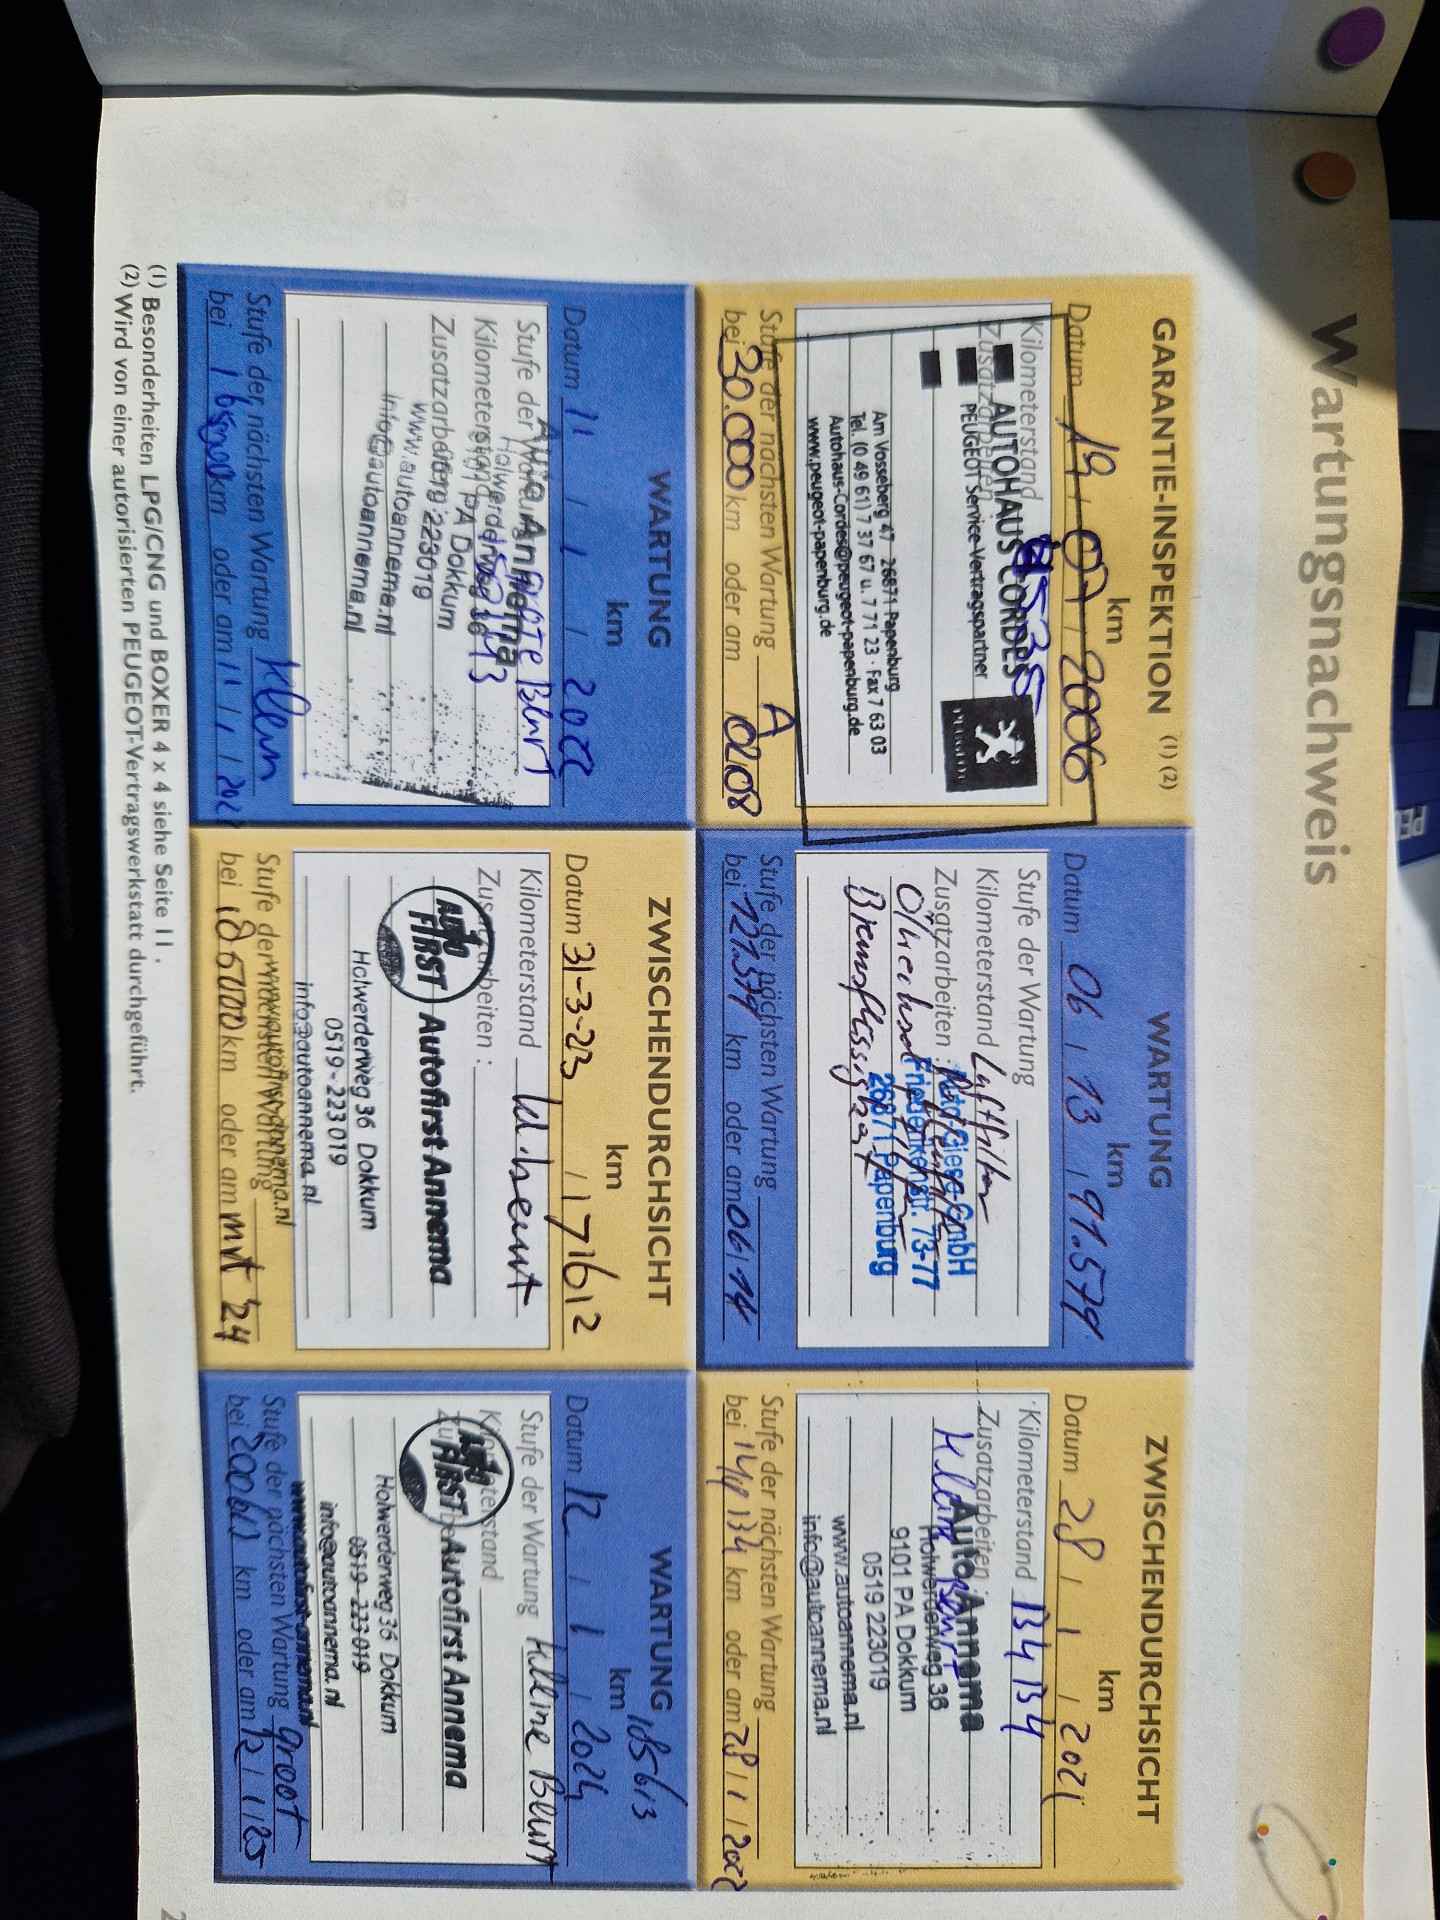 Wartungsnachweis
GARANTIE-INSPEKTION (1) (2)
km
Datum 19 07 2006
Kilometerstand
Zusatzarbeiten
AUTOHAUS CORDES
PEUGEOT Service-Vertragspartner
PEUGEOT
Am Vosseberg 47 · 26871 Papenburg
Tel. (0 49 61) 7 37 67 u. 7 71 23 · Fax 7 63 03
Autohaus-Cordes@peugeot-papenburg.de
www.peugeot-papenburg.de
Stufe der nächsten Wartung A
bei 30.000 km oder am 02.08
WARTUNG
km
Datum 06 13 91.579
Stufe der Wartung
Kilometerstand Luftfilter
Zusatzarbeiten :
Auto Giese GmbH
Ölwechsel
Friederikenstr. 73-77
Bremsflüssigkeit
26871 Papenburg
Stufe der nächsten Wartung
bei 121.579 km oder am 06 14
ZWISCHENDURCHSICHT
km
Datum 28 1 2021
Kilometerstand 134134
Zusatzarbeiten :
Kleine Beurt
Auto Annema
Holwerderweg 36
9101 PA Dokkum
0519 223019
www.autoannema.nl
info@autoannema.nl
Stufe der nächsten Wartung
bei 144134 km oder am 28 1 2022
WARTUNG
km
Datum 11 1 2022
Stufe der Wartung Grote Blurt
Kilometerstand
Zusatzarbeiten :
Auto Annema
Holwerderweg 36
9101 PA Dokkum
0519 223019
www.autoannema.nl
info@autoannema.nl
Stufe der nächsten Wartung Klein
bei km oder am 11 1
ZWISCHENDURCHSICHT
km
Datum 31-3-23 171612
Kilometerstand kl. beurt
Zusatzarbeiten :
AUTO FIRST Autofirst Annema
Holwerderweg 36 Dokkum
0519 - 223 019
info@autoannema.nl
www.autofirstannema.nl
Stufe der nächsten Wartung
bei 186000 km oder am mrt '24
WARTUNG 185613
km
Datum 12 1 2024
Stufe der Wartung kleine Blurt
Kilometerstand
AUTO FIRST Autofirst Annema
Holwerderweg 36 Dokkum
0519 - 223 019
info@autoannema.nl
www.autofirstannema.nl
Stufe der nächsten Wartung groot
bei 200613 km oder am 12 1 25
(1) Besonderheiten LPG/CNG und BOXER 4 x 4 siehe Seite 11 .
(2) Wird von einer autorisierten PEUGEOT-Vertragswerkstatt durchgeführt.